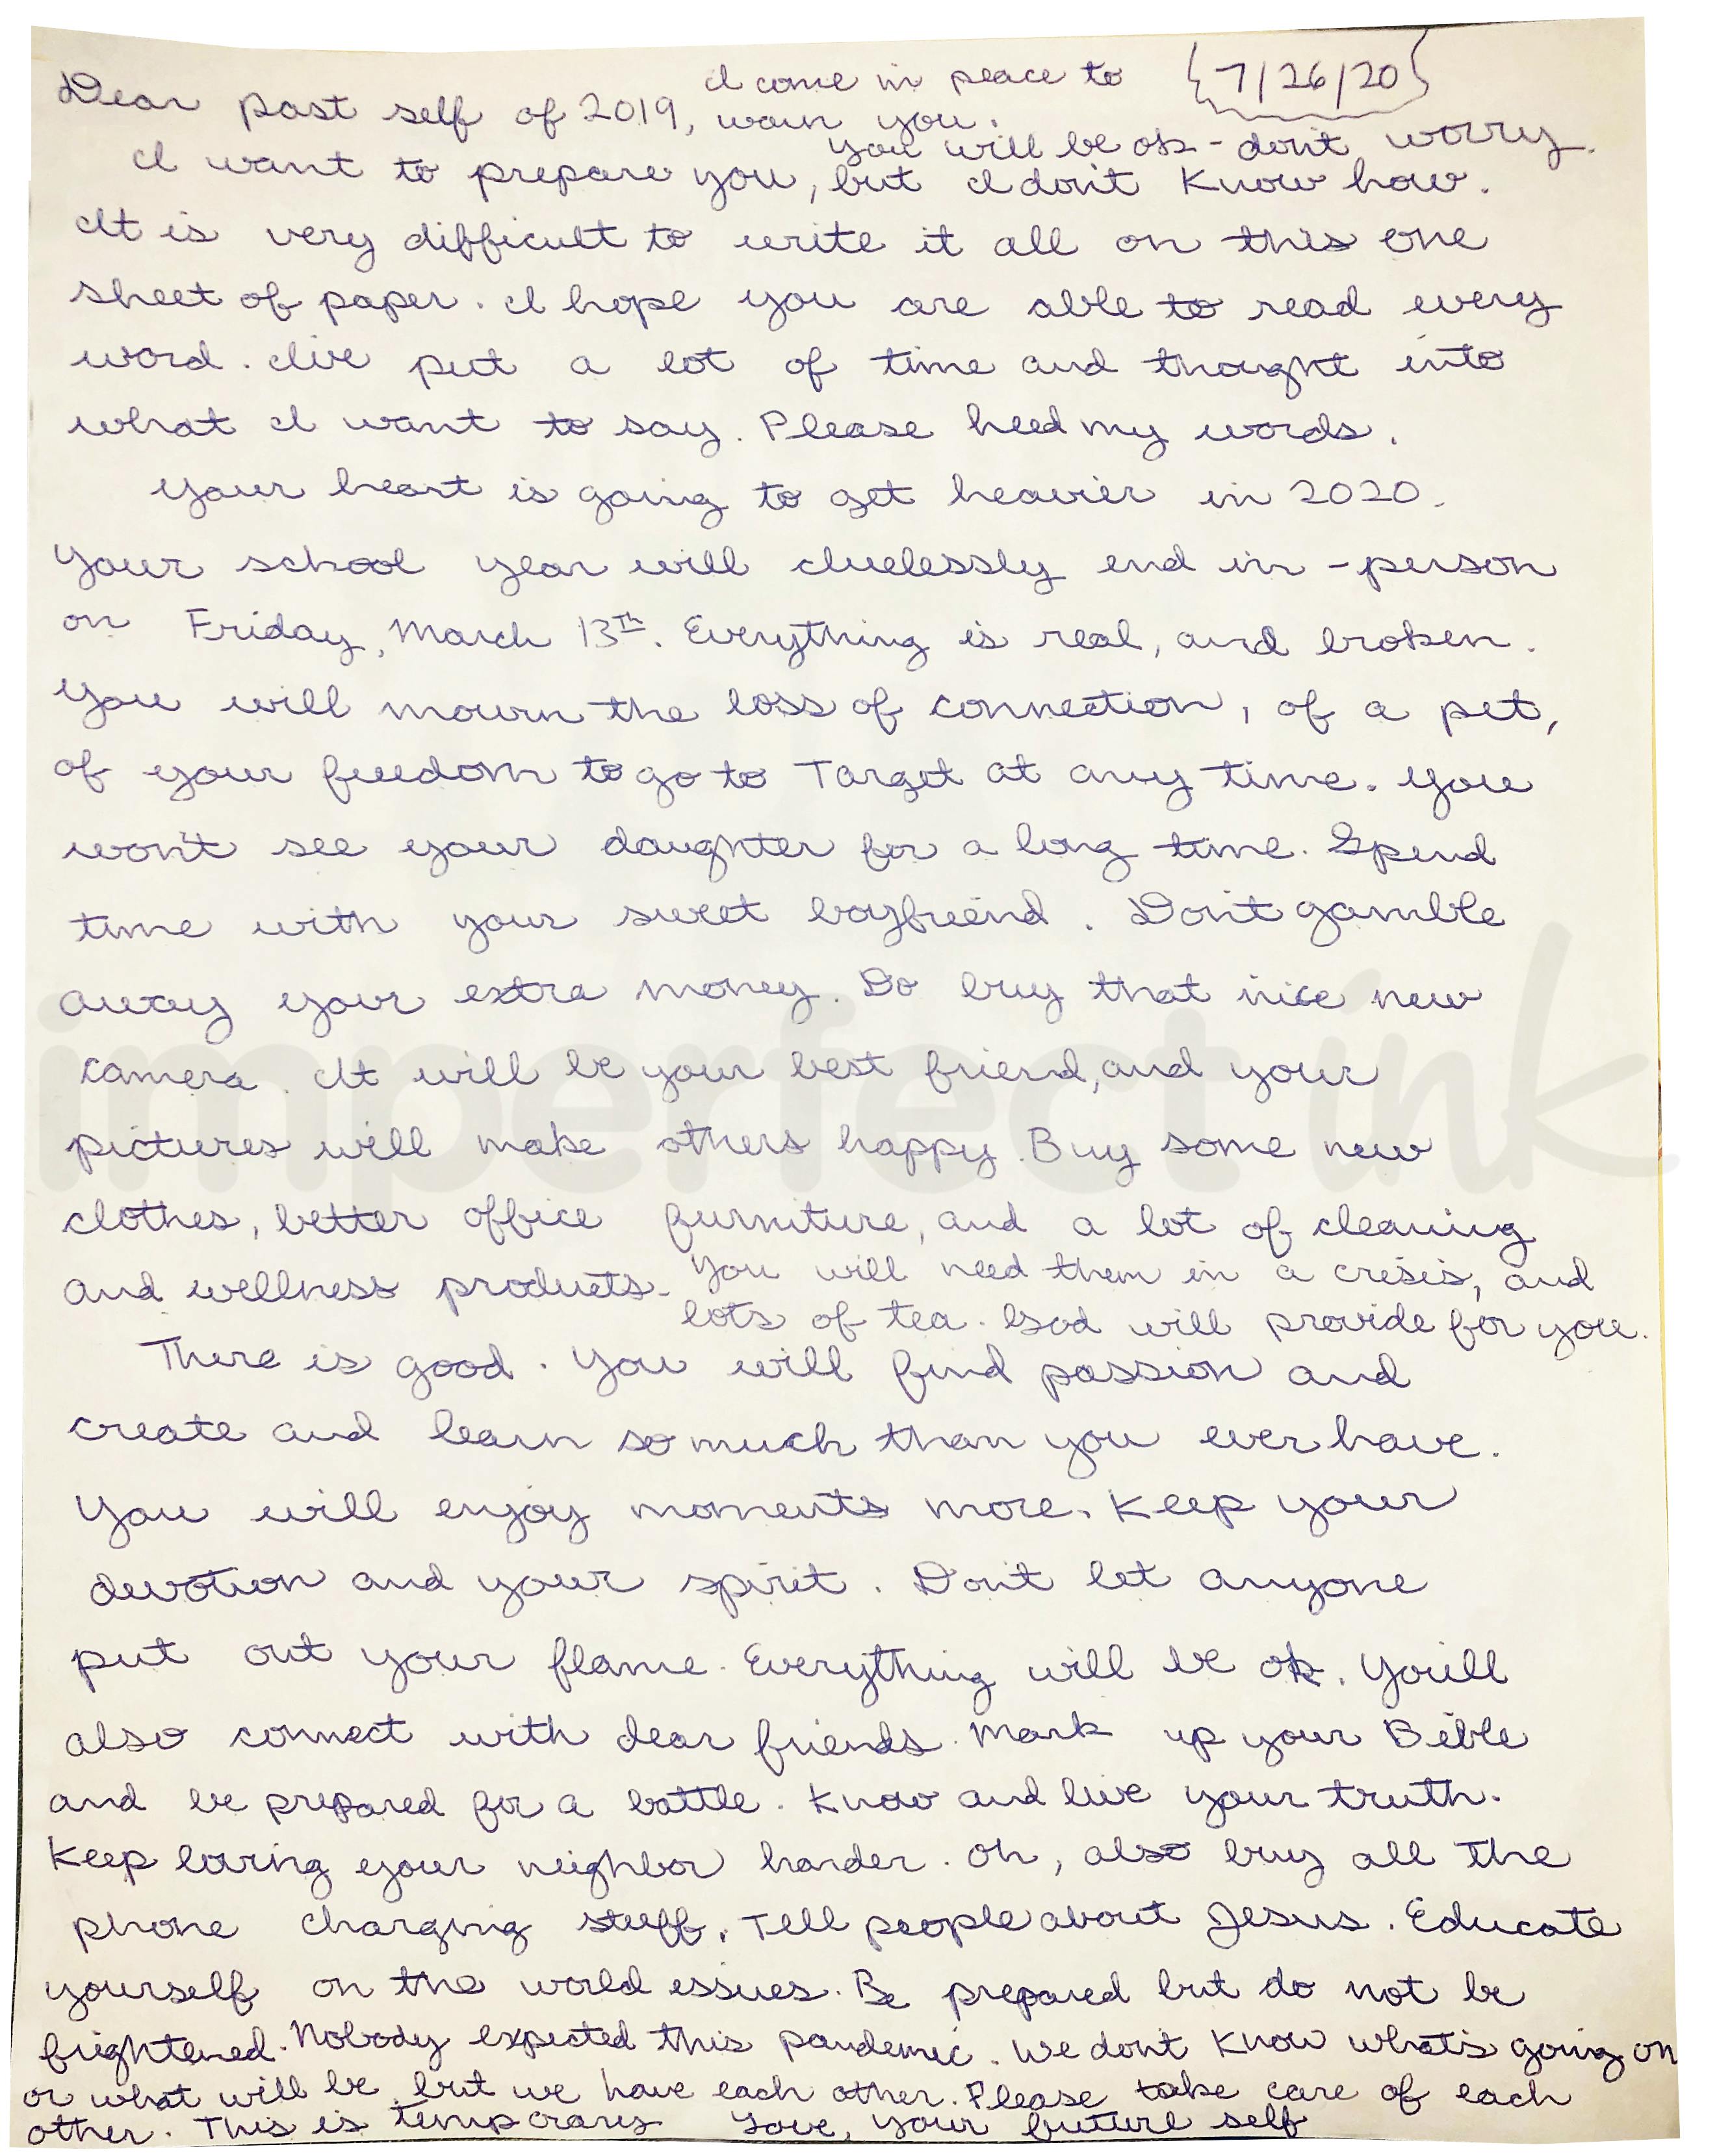 {7/26/20}
Dear past self of 2019, I come in peace to
warn you.
you will be ok - don't worry.
I want to prepare you, but I don't know how.
It is very difficult to write it all on this one
sheet of paper. I hope you are able to read every
word. I've put a lot of time and thought into
what I want to say. Please heed my words.
Your heart is going to get heavier in 2020.
Your school year will cluelessly end in-person
on Friday, March 13th. Everything is real, and broken.
You will mourn the loss of connection, of a pet,
of your freedom to go to Target at any time. You
won't see your daughter for a long time. Spend
time with your sweet boyfriend. Don't gamble
away your extra money. Do buy that nice new
camera. It will be your best friend, and your
pictures will make others happy. Buy some new
clothes, better office furniture, and a lot of cleaning
and wellness products. You will need them in a crisis, and
lots of tea. God will provide for you.
There is good. You will find passion and
create and learn so much than you ever have.
You will enjoy moments more. Keep your
devotion and your spirit. Don't let anyone
put out your flame. Everything will be ok. You'll
also connect with dear friends. Mark up your Bible
and be prepared for a battle. Know and live your truth.
Keep loving your neighbor harder. Oh, also buy all the
phone charging stuff. Tell people about Jesus. Educate
yourself on the world issues. Be prepared but do not be
frightened. Nobody expected this pandemic. We don't know what's going on
or what will be, but we have each other. Please take care of each
other. This is temporary Love, your future self
imperfect ink